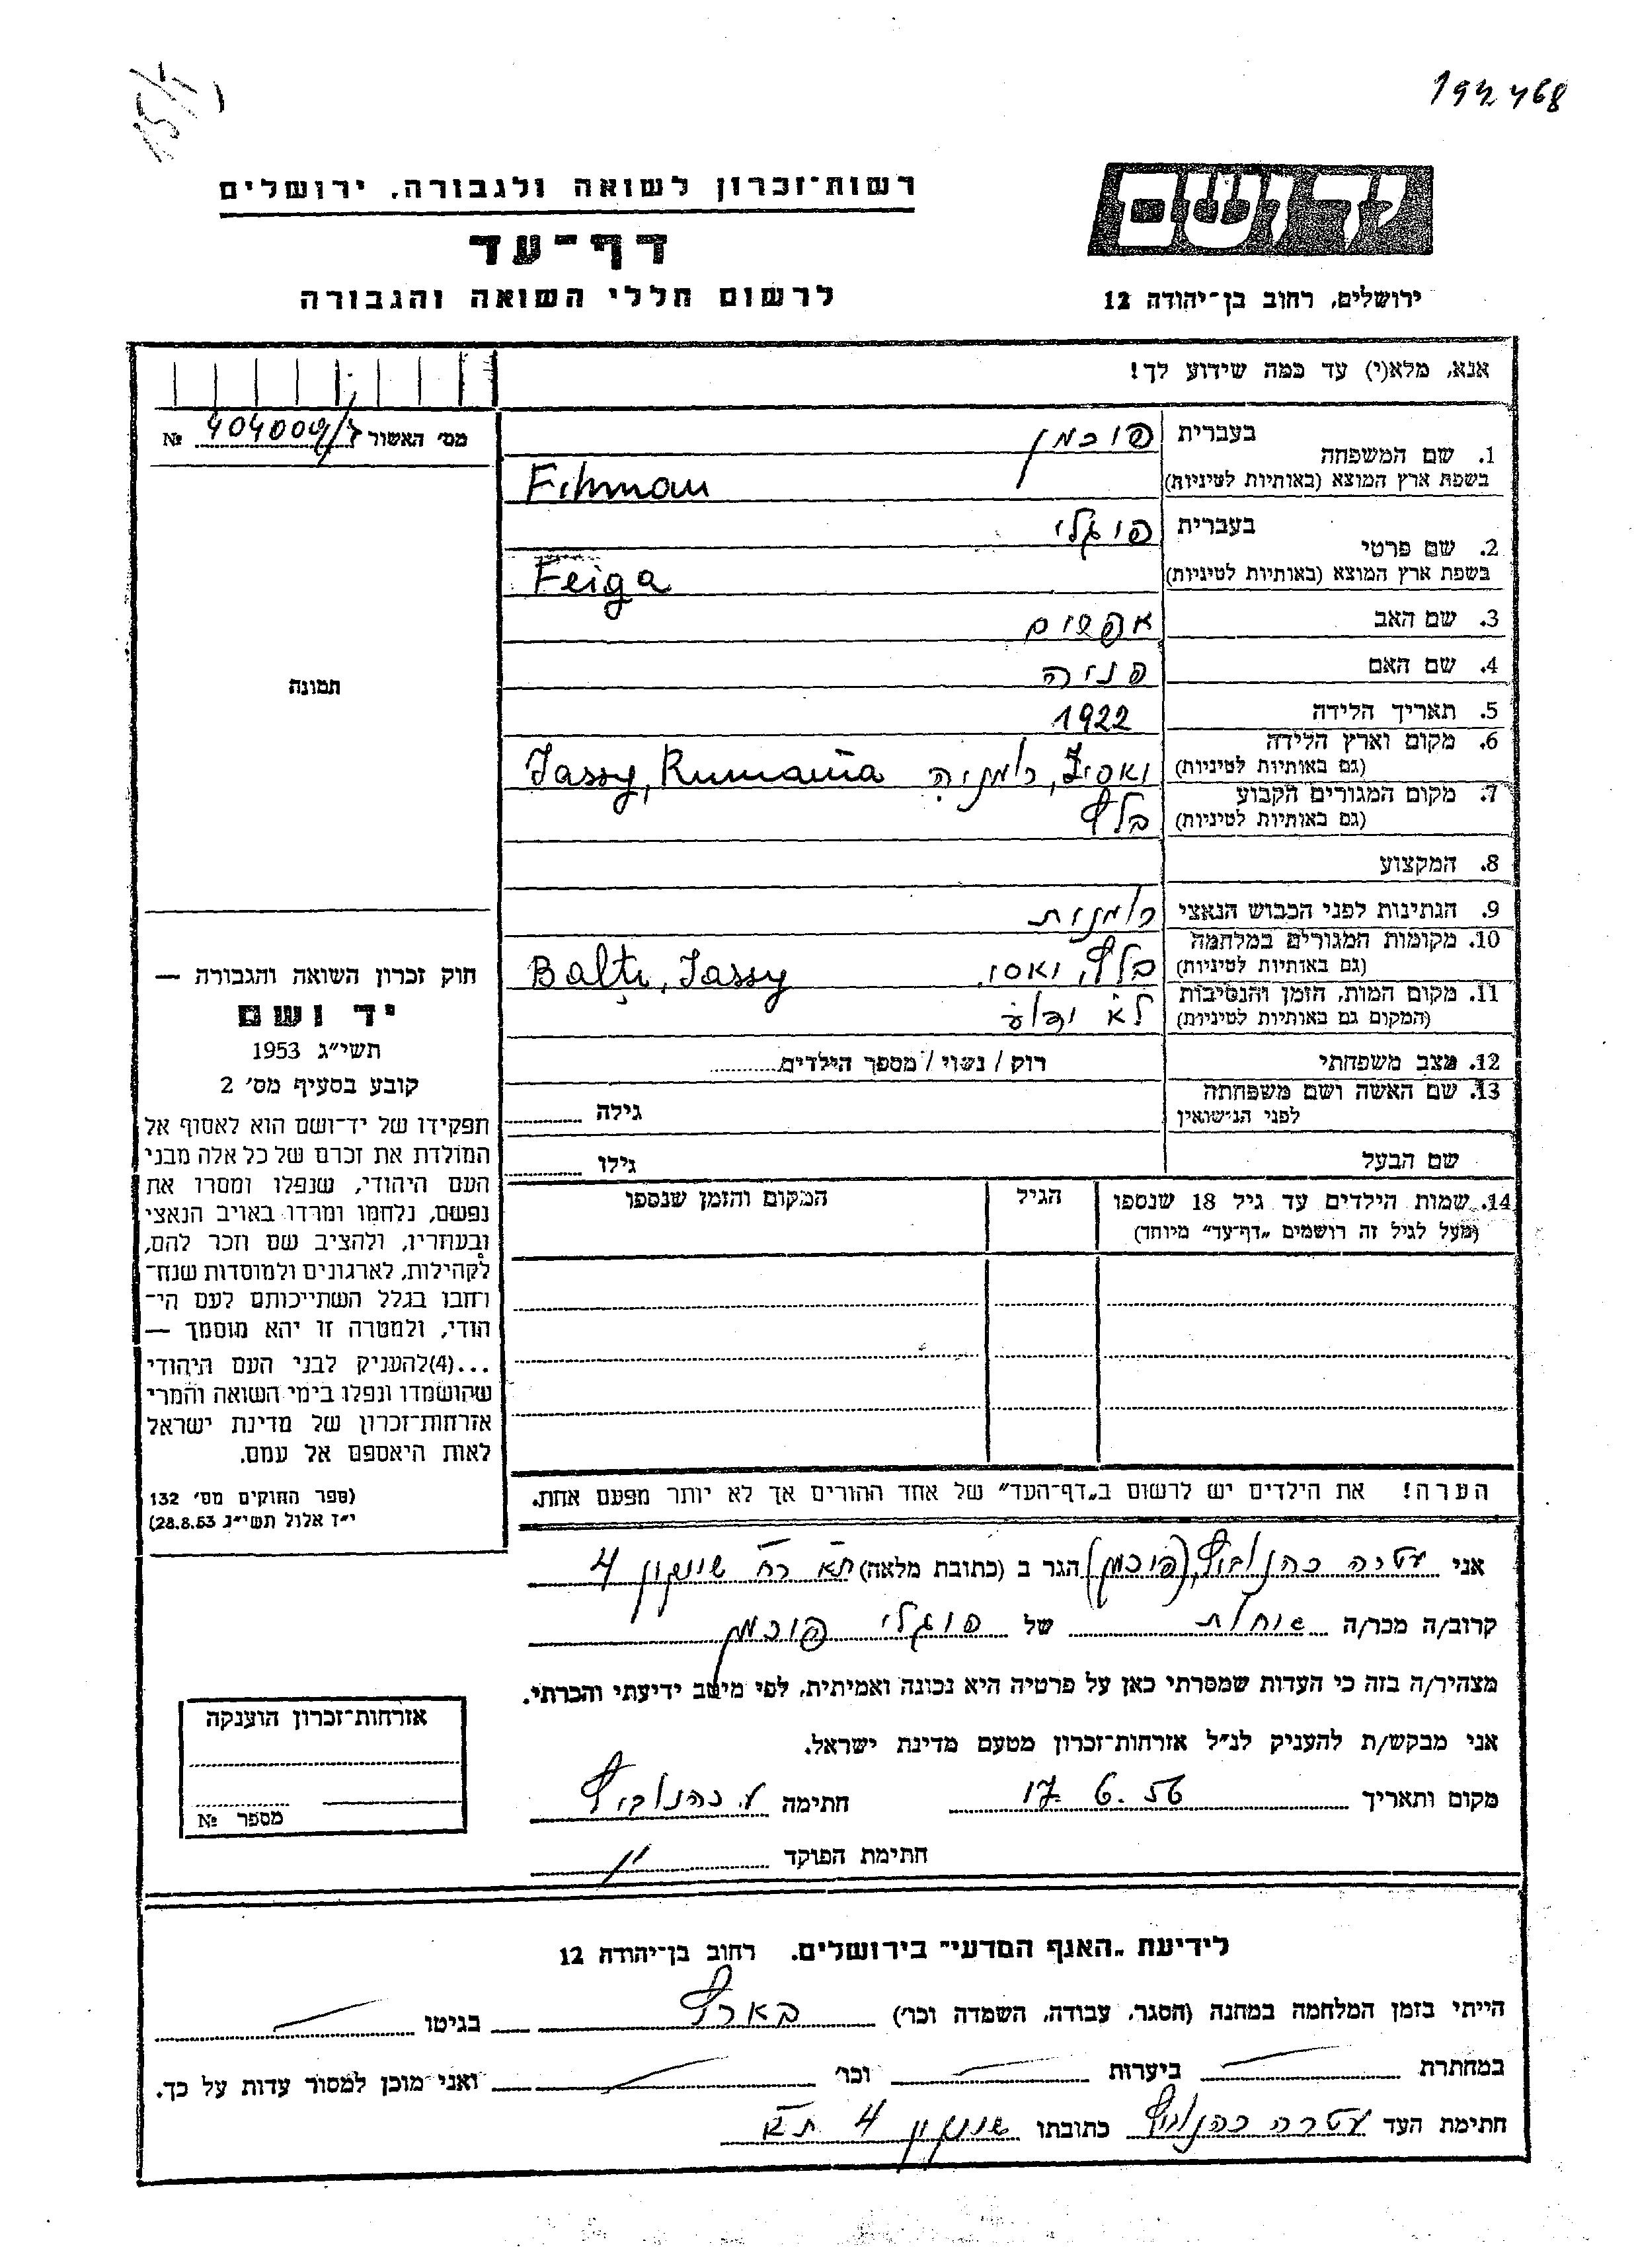 192468
רשות־זכרון לשואה ולגבורה. ירושלים
דף־עד
לרשום חללי השואה והגבורה
יד ושם
ירושלים, רחוב בן־יהודה 12
אנא, מלא(י) עד כמה שידוע לך!
מס׳ האשור 404009/7 №
תמונה
חוק זכרון השואה והגבורה —
יד ושם
תשי״ג 1953
קובע בסעיף מס׳ 2
תפקידו של יד־ושם הוא לאסוף אל
המולדת את זכרם של כל אלה מבני
העם היהודי, שנפלו ומסרו את
נפשם, נלחמו ומרדו באויב הנאצי
ובעוזריו, ולהציב שם וזכר להם,
לקהילות, לארגונים ולמוסדות שנח־
רחבו בגלל השתייכותם לעם הי־
הודי, ולמטרה זו יהא מוסמך —
...(4)להעניק לבני העם היהודי
שהושמדו ונפלו בימי השואה והמרי
אזרחות־זכרון של מדינת ישראל
לאות היאספם אל עמם.
(ספר החוקים מס׳ 132
י״ז אלול תשי״ג 28.8.53)
1. שם המשפחה
בעברית פוכמן
בשפת ארץ המוצא (באותיות לטיניות) Fihman
2. שם פרטי
בעברית פויגלי
בשפת ארץ המוצא (באותיות לטיניות) Feiga
3. שם האב אפשים
4. שם האם פניה
5. תאריך הלידה 1922
6. מקום וארץ הלידה
(גם באותיות לטיניות) רומניה Jassy, Rumania
7. מקום המגורים הקבוע
(גם באותיות לטיניות) בלץ
8. המקצוע
9. הנתינות לפני הכבוש הנאצי רומנית
10. מקומות המגורים במלחמה
(גם באותיות לטיניות) בלץ, יאסי. Balti, Jassy
11. מקום המות, הזמן והנסיבות
(המקום גם באותיות לטיניות) לא ידוע
12. מצב משפחתי רוק / נשוי / מספר הילדים
13. שם האשה ושם משפחתה
לפני הנישואין גילה
שם הבעל גילו
14. שמות הילדים עד גיל 18 שנספו הגיל המקום והזמן שנספו
(מעל לגיל זה רושמים „דף־עד״ מיוחד)
הערה! את הילדים יש לרשום ב„דף־העד״ של אחד ההורים אך לא יותר מפעם אחת.
אני עטרה כהנוביץ (פוכמן) הגר ב (כתובת מלאה) ת״א רח׳ שינקין 4
קרוב/ה מכר/ה אחות של פויגלי פוכמן
מצהיר/ה בזה כי העדות שמסרתי כאן על פרטיה היא נכונה ואמיתית, לפי מיטב ידיעתי והכרתי.
אני מבקש/ת להעניק לנ״ל אזרחות־זכרון מטעם מדינת ישראל.
מקום ותאריך 17.6.56 חתימה ע. כהנוביץ
חתימת הפוקד
אזרחות־זכרון הוענקה
מספר №
לידיעת „האגף המדעי״ בירושלים. רחוב בן־יהודה 12
הייתי בזמן המלחמה במחנה (הסגר, עבודה, השמדה וכו׳) בגיטו
במחתרת ביערות וכו׳ ואני מוכן למסור עדות על כך.
חתימת העד עטרה כהנוביץ כתובתו שינקין 4 ת״א